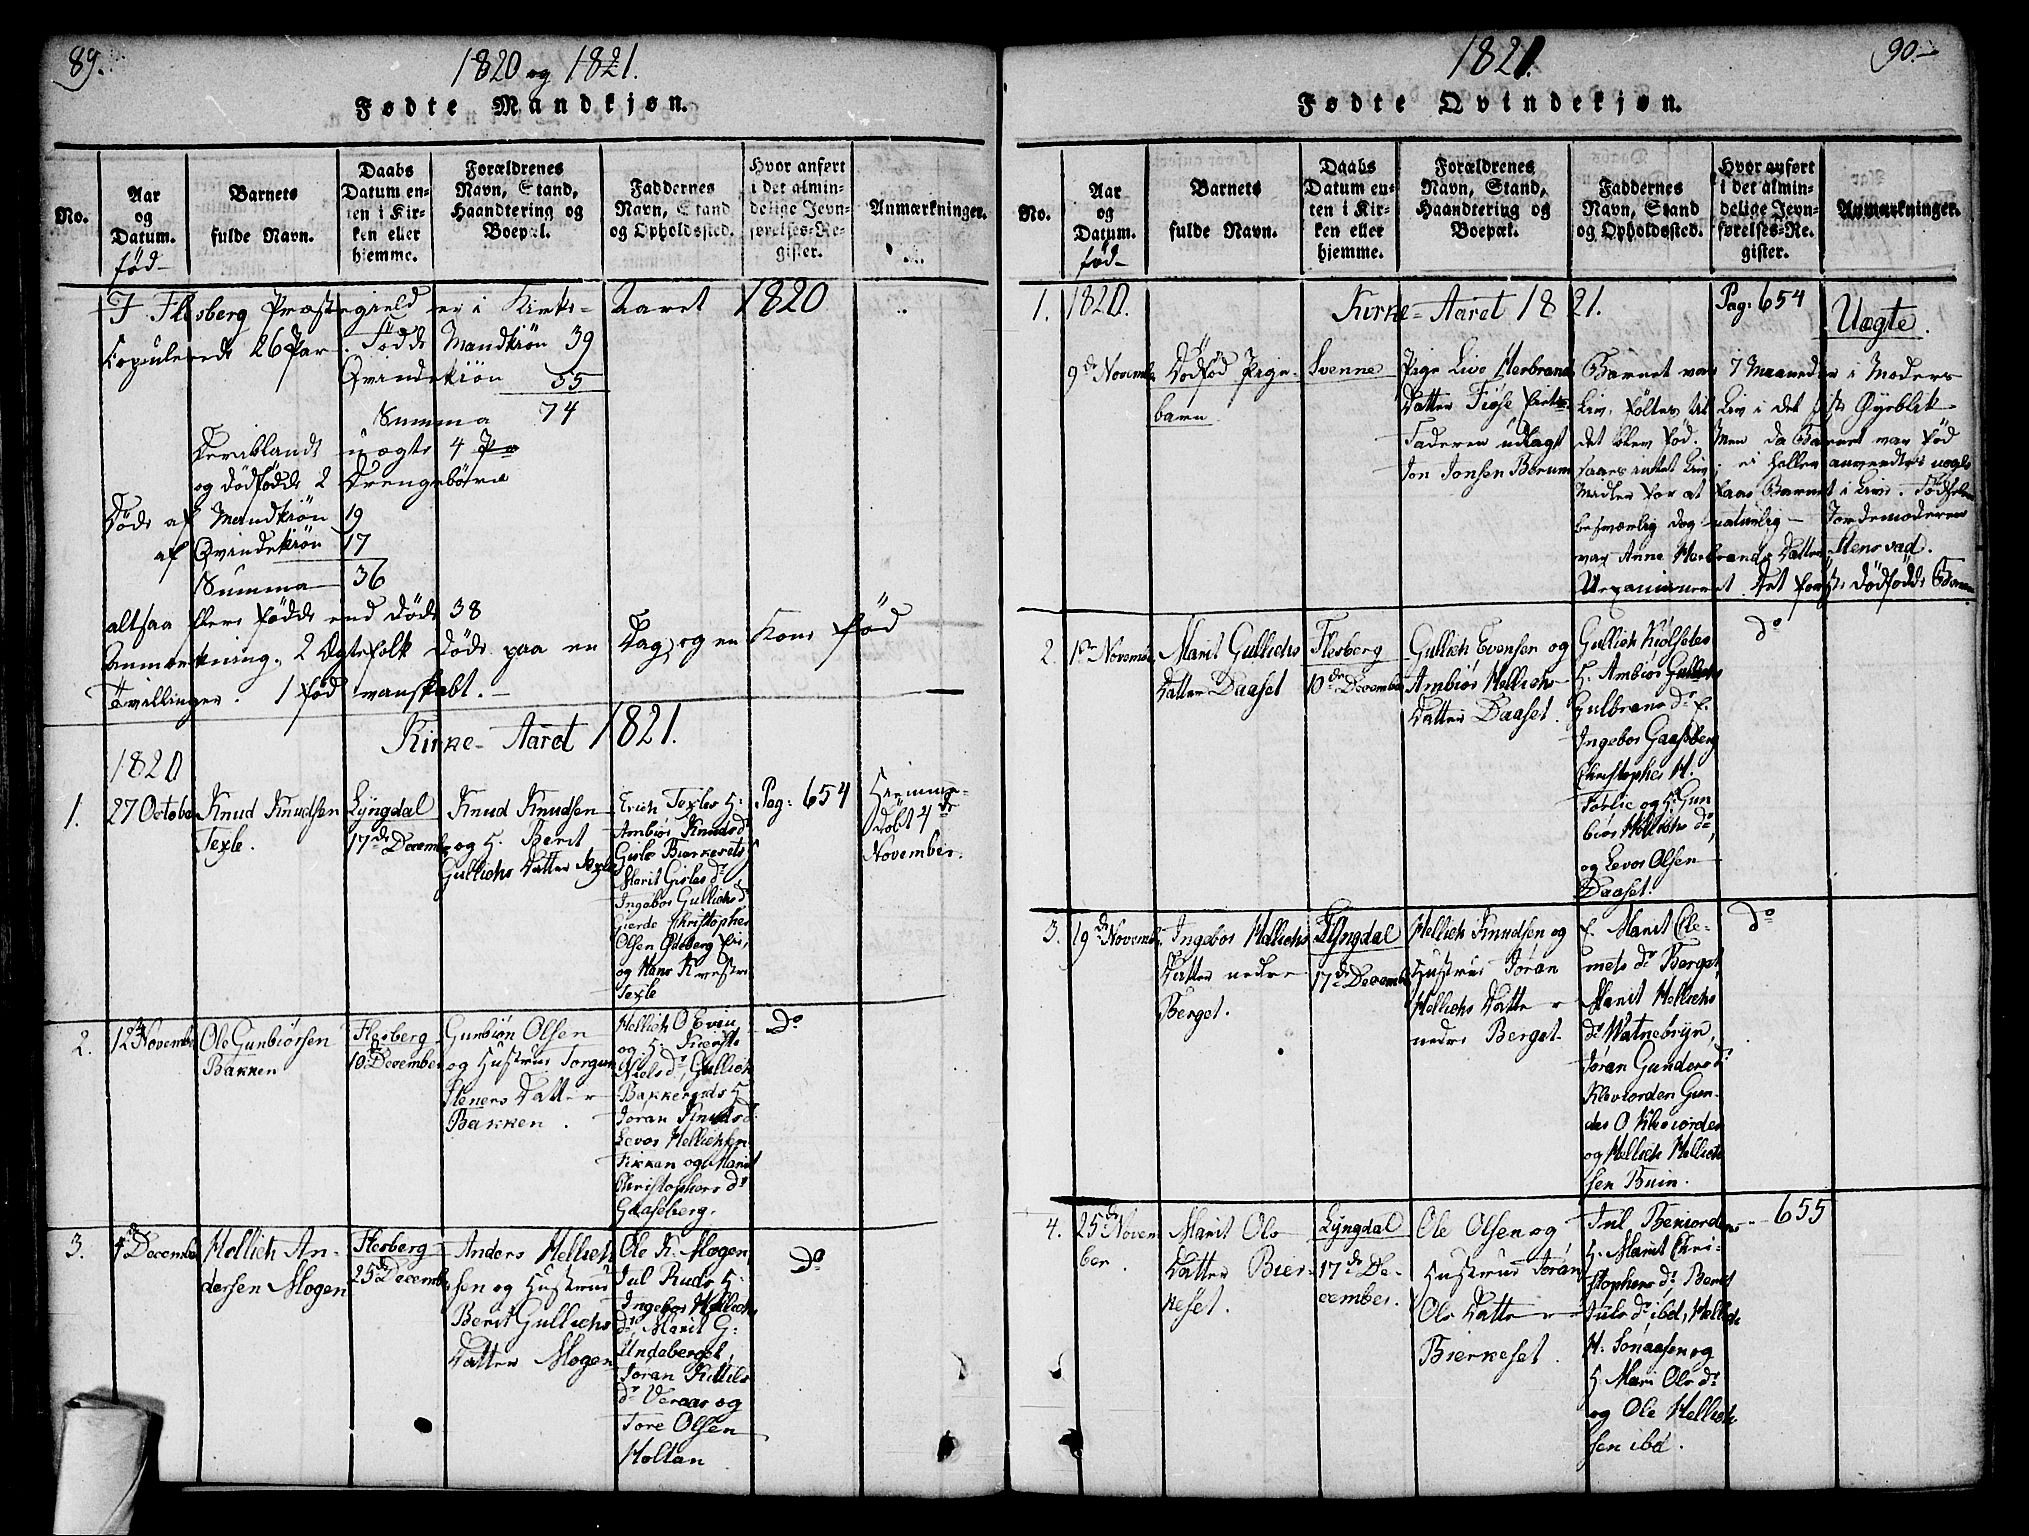 89.
1820 og 1821.
Fødte Mandkjøn.
No.
Aar
og
Datum.
fød
Barnets
fulde Navn.
Daabs
Datum en-
ten i Kir-
ken eller
hjemme.
Forældrenes
Navn, Stand,
Haandtering og
Boepæl.
Faddernes
Navn, Stand
og Opholdssted.
Hvor anført
i det almin-
delige Jevn-
førelses-Re-
gister.
Anmærkninger.
I Flesberg Præstegield er i Kirke-Aaret 1820
Copulerede 26 Par. Fødde Mandkiön 39
Qvindekiön 35
Summa 74
Deriblandt uægte 4
og dödfödde 2 Drengebörn
Döde af Mandkiön 19
af Qvindekiön 17
Summa 36
altsaa flere födde end döde 38
Anmærkning. 2 Ægtefolk döde paa en Dag, og en Kone fød
Tvillinger. 1 fød vanskabt.
Kirke-Aaret 1821.
1820
1.
27 October
Knud Knudsen
Texle.
Lyngdal
17de Decemb
Knud Knudsen
og H. Berit
Gullichs Datter Texle
Erich Texles H.
Ambiør Knuds d.
Gisle Bierkesets
Marit Gisles d.
Ingebor Gullichs d.
Gierde Christophers
Olsen Ødeberg
og Hans Knutsen
Texle
Pag: 654
Hiemme-
døbt 4de
November.
2.
12 November
Ole Gunbiørsen
Bakken
Flesberg
10 December
Gunbiøn Olsen
og Hustrue Torgun
Steners Datter
Bakken.
Hellich O Evju
og H. Kiersti
Niels d., Gullich
Bakkerud H
Jøran Knuds d.
Levor Hellichsen
Fikkan og Marit
Christophers d.
Gaaseberg.
Do
3.
4 December
Hellich An-
dersen Mogen
Flesberg
25 December
Anders Hellich-
sen og Hustrue
Berit Gullichs
Datter Mogen
Ole K. Mogen,
Jul Ruds H.
Ingebor Hellichs
d., Marit G.
Undeberget,
Jøran Kittils
d. Veraas og
Tore Olsen
Holtan
Do
90.
1821.
Fødte Qvindekjøn.
No.
Aar
og
Datum.
fød
Barnets
fulde Navn.
Daabs
Datum en-
ten i Kir-
ken eller
hjemme.
Forældrenes
Navn, Stand,
Haandtering og
Boepæl.
Faddernes
Navn, Stand
og Opholdssted.
Hvor anført
i det almin-
delige Jevn-
førelses-Re-
gister.
Anmærkninger.
1.
1820.
Kirke-Aaret 1821.
Pag: 654
Uægte.
9de Novembr
Dødfød Pige-
barn
Svenne
Pige Live Herbrands
Datter Fiøse
Faderen udlagt
Jon Jonsen Borum
Barnet var 7 Maaneder i Moders
Liv, følte til Liv i det sidste Øyeblik
det blev fød. Men da Barnet var fød
saaes intet Liv; ei heller anvendtes nogle
Midler for at faae Barnet i Live. Fødselen
besværlig dog naturlig – Jordemoderen
var Anne Herbrands Datter Stensvad.
Uexamineret. Det første dødfødde Barn.
2.
1ste November
Marit Gullichs
Datter Daaset
Flesberg
10de December
Gullich Evensen og
Ambiør Hellichs
Datter Daaset.
Gullich Kiølseter
H. Ambiør Gullichs
Gulbrans d. P.
Ingebor Gaaseberg
Christopher H.
Førlie og H. Gun-
biør Hellichs d.,
og Levor Olsen
Daaset.
Do
3.
19de Novemb
Ingebor Hellichs
Datter nedre
Berget.
Lyngdal
17de Decemb
Hellich Knudsen og
Hustrue Jøran
Hellichs Datter
nedre Berget
P. Marit Cle-
mets d. Berget,
Marit Hellichs
d. Watnebryn,
Jøran Gunders d.
Kleviorden Gun-
der O Kleviorden
og Hellich Hellich-
sen Buin.
Do
4.
25de Novem
ber.
Marit Ols
Datter Bier-
keset.
Lyngdal
17de De-
cember.
Ole Olsen og
Hustrue Jøran
Ols Datter
Bierkeset.
Jul Bekiorden
H. Marit Chri-
stophers d., Berit
Juls d. ibd, Hellich
H. Sønaasen og
H. Mari Ols d.
og Ole Hellich-
sen ibd.
655